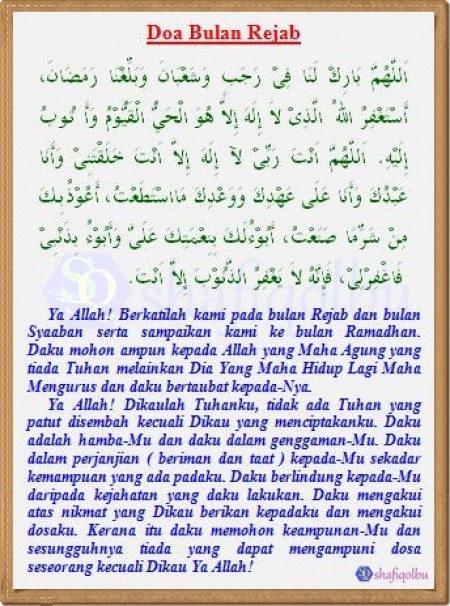 Doa Bulan Rejab
اَللَّهُمَّ بَارِكْ لَنَا فِيْ رَجَبَ وَشَعْبَانَ وَبَلِّغْنَا رَمَضَانَ،
أَسْتَغْفِرُ اللهَ الَّذِيْ لاَ إِلَهَ إِلاَّ هُوَ الْحَيُّ الْقَيُّوْمُ وَأَ تُوبُ
إِلَيْهِ. اَللَّهُمَّ اَنْتَ رَبِّيْ لآ إِلَهَ إِلاَّ اَنْتَ خَلَقْتَنِيْ وَأَنَا
عَبْدُكَ وَأَنَا عَلَى عَهْدِكَ وَوَعْدِكَ مَااسْتَطَعْتُ، أَعُوْذُبِكَ
مِنْ شَرِّمَا صَنَعْتُ، أَبُوْءُلَكَ بِنِعْمَتِكَ عَلَيَّ وَأَبُوْءُ بِذَنْبِيْ
فَاغْفِرْلِيْ، فَإِنَّهُ لاَ يَغْفِرُ الذُّنُوْبَ إِلاَّ اَنْتَ.
Ya Allah! Berkatilah kami pada bulan Rejab dan bulan
Syaaban serta sampaikan kami ke bulan Ramadhan.
Daku mohon ampun kepada Allah yang Maha Agung yang
tiada Tuhan melainkan Dia Yang Maha Hidup Lagi Maha
Mengurus dan daku bertaubat kepada-Nya.
Ya Allah! Dikaulah Tuhanku, tidak ada Tuhan yang
patut disembah kecuali Dikau yang menciptakanku. Daku
adalah hamba-Mu dan daku dalam genggaman-Mu. Daku
dalam perjanjian ( beriman dan taat ) kepada-Mu sekadar
kemampuan yang ada padaku. Daku berlindung kepada-Mu
daripada kejahatan yang daku lakukan. Daku mengakui
atas nikmat yang Dikau berikan kepadaku dan mengakui
dosaku. Kerana itu daku memohon keampunan-Mu dan
sesungguhnya tiada yang dapat mengampuni dosa
seseorang kecuali Dikau Ya Allah!
shafiqolbu
shafiqolbu